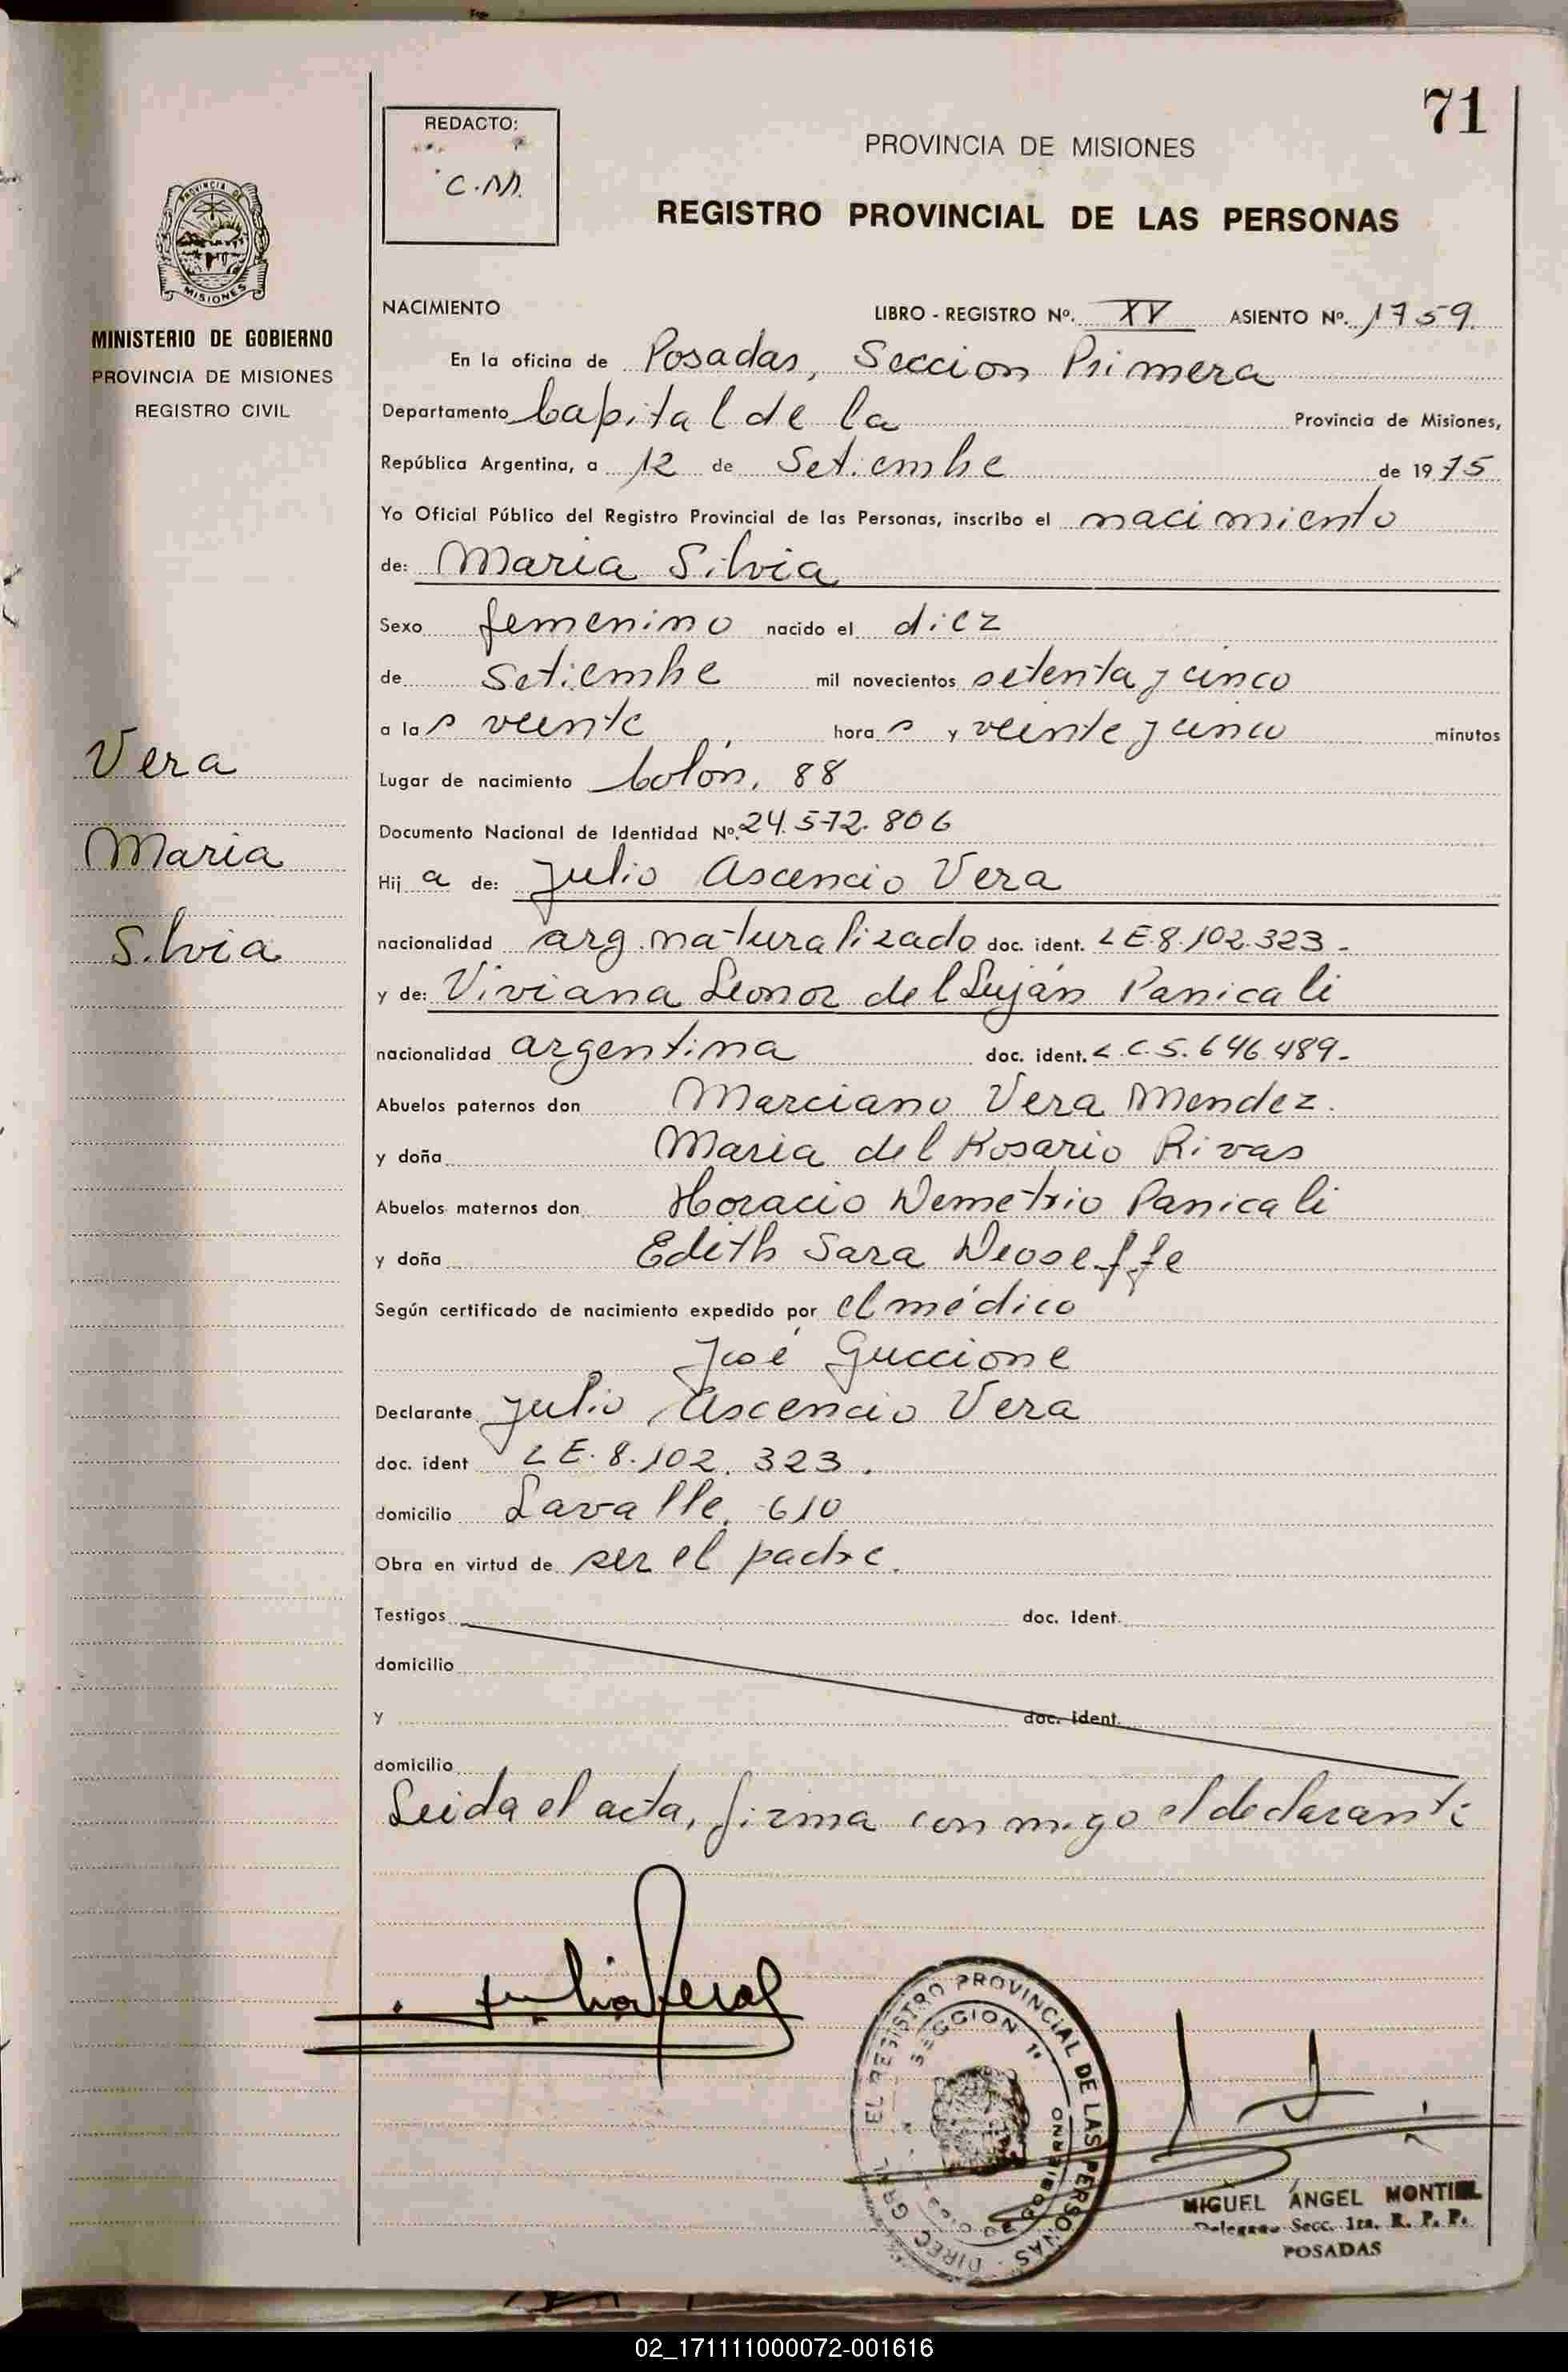 71
REDACTO:
C.M.
PROVINCIA DE MISIONES
REGISTRO PROVINCIAL DE LAS PERSONAS
PROVINCIA DE
MISIONES
MINISTERIO DE GOBIERNO
PROVINCIA DE MISIONES
REGISTRO CIVIL
Vera
Maria
Silvia
NACIMIENTO LIBRO - REGISTRO Nº. XV ASIENTO Nº. 1759.
En la oficina de Posadas, Seccion Primera
Departamento Capital de la Provincia de Misiones,
República Argentina, a 12 de Setiembre de 1975
Yo Oficial Público del Registro Provincial de las Personas, inscribo el nacimiento
de: Maria Silvia
Sexo femenino nacido el diez
de Setiembre mil novecientos setenta y cinco
a las veinte, horas y veinte y cinco minutos
Lugar de nacimiento Colón, 88
Documento Nacional de Identidad Nº. 24.572.806
Hija de: Julio Ascencio Vera
nacionalidad arg. naturalizado doc. ident. L E.8.102.323.-
y de: Viviana Leonor del Luján Panicali
nacionalidad argentina doc. ident. L.C.5.646.489.-
Abuelos paternos don Marciano Vera Mendez.
y doña Maria del Rosario Rivas
Abuelos maternos don Horacio Demetrio Panicali
y doña Edith Sara Deoseffe
Según certificado de nacimiento expedido por el médico
José Guccione
Declarante Julio Ascencio Vera
doc. ident L E. 8.102.323.
domicilio Lavalle, 610
Obra en virtud de ser el padre.
Testigos doc. Ident.
domicilio
y doc. ident.
domicilio
Leida el acta, firma conmigo el declarante
EL REGISTRO PROVINCIAL DE LAS PERSONAS - DIREC. GRAL.
SECCION 1ª
GOBIERNO
MIGUEL ÁNGEL MONTIEL
Delegado Secc. 1ra. R. P. P.
POSADAS
02_171111000072-001616